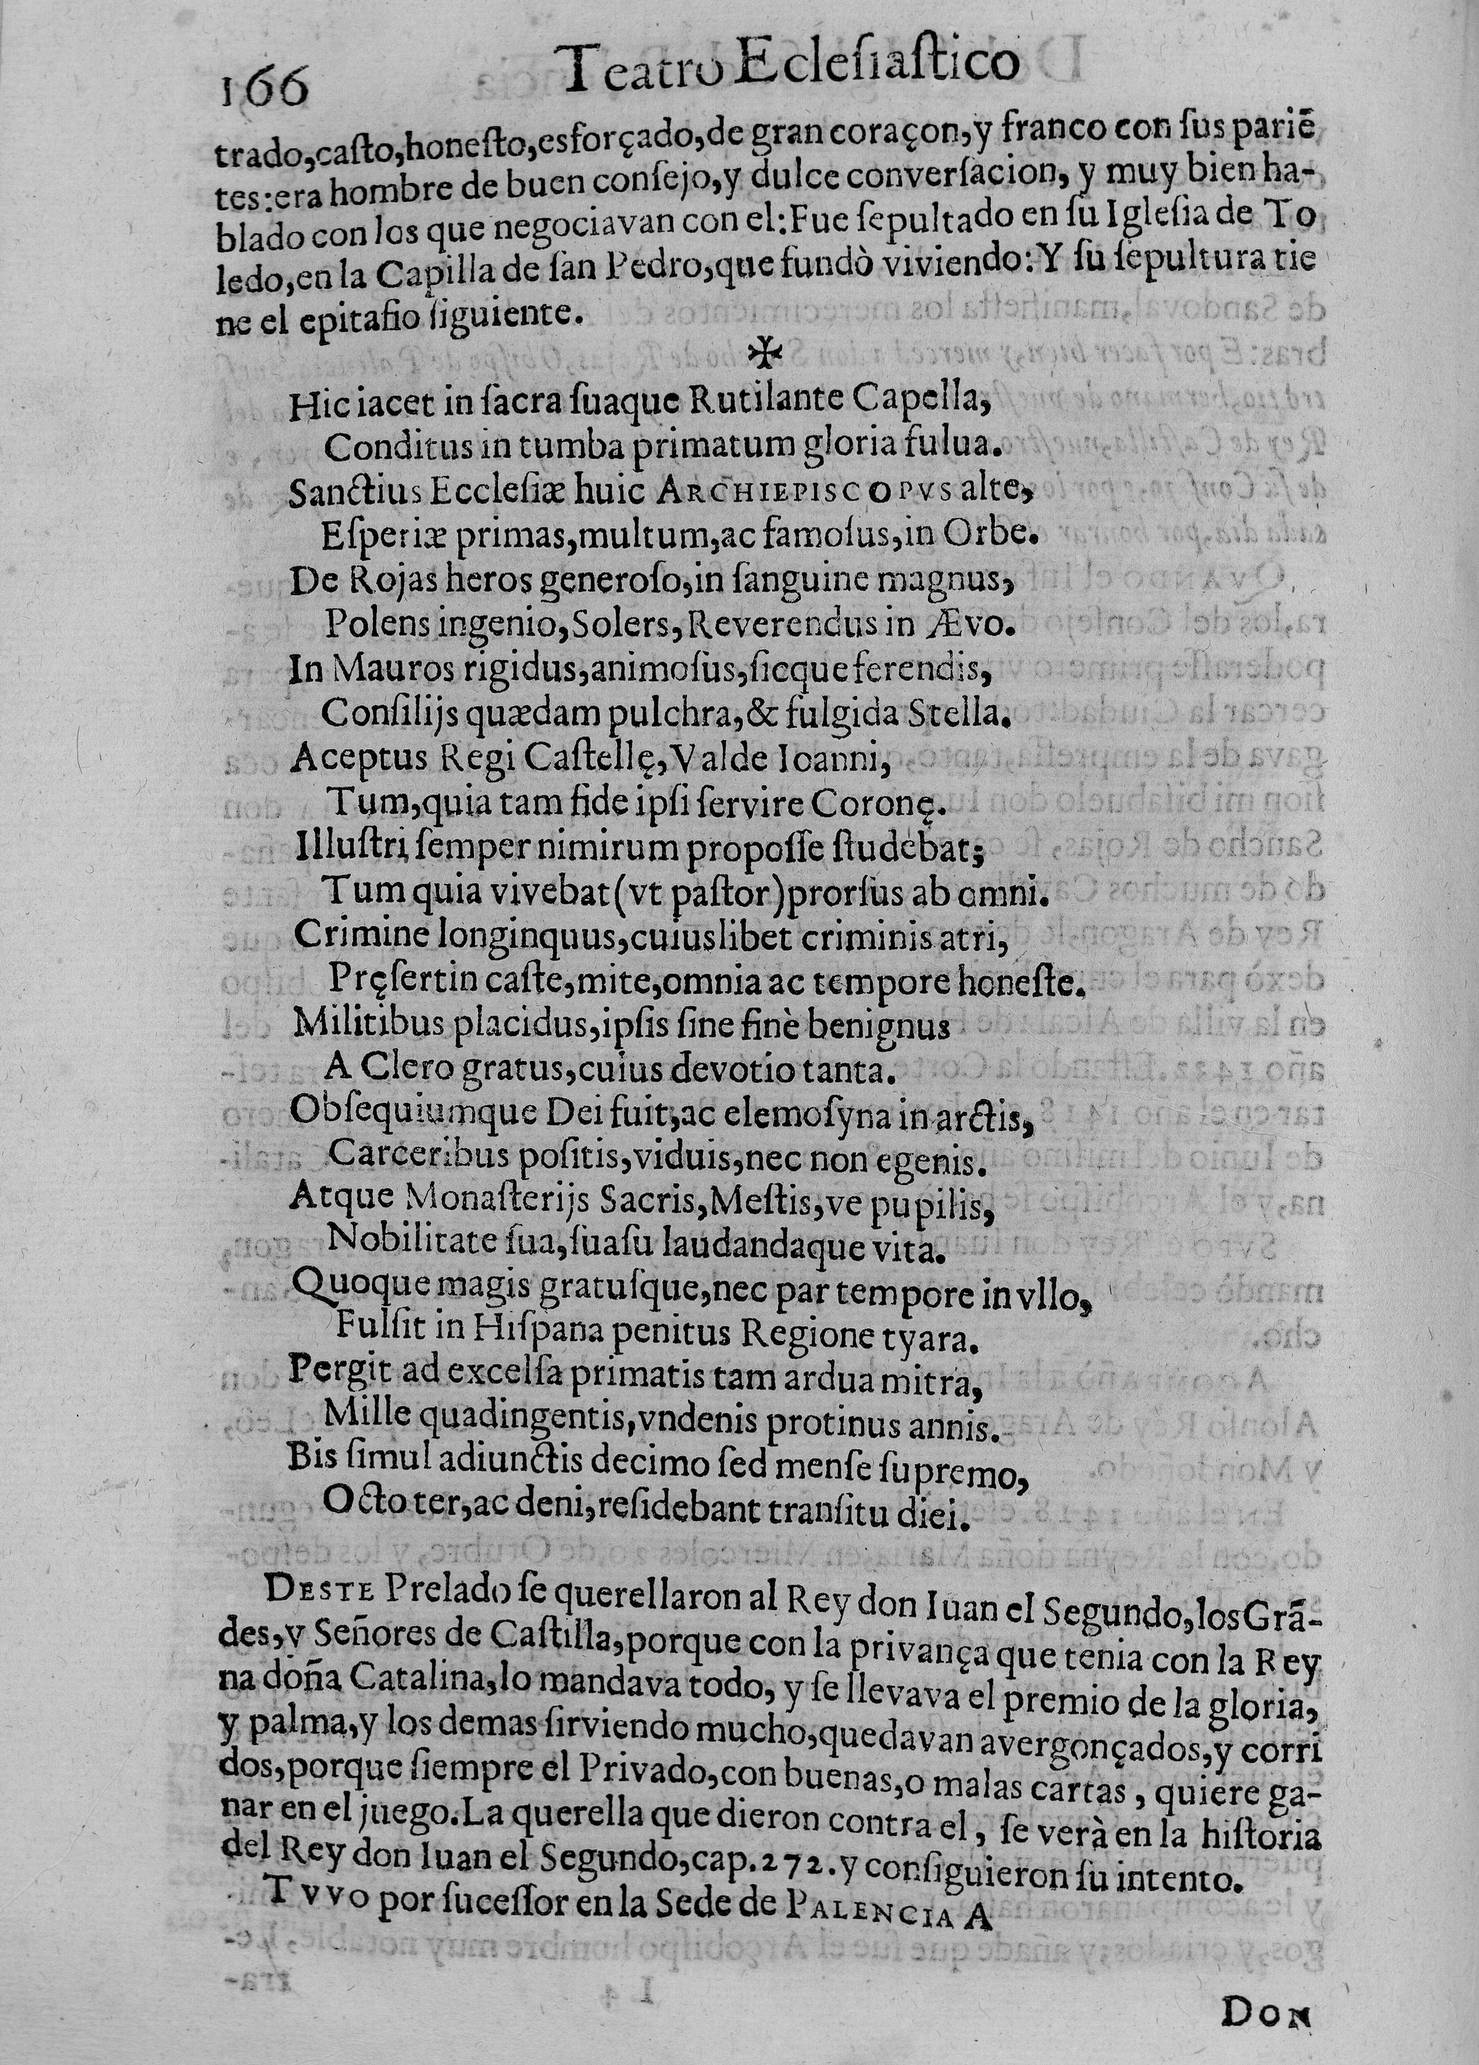 166 Teatro Eclesiastico
trado,casto,honesto,esforçado,de gran coraçon,y franco con sus pariẽ
tes:era hombre de buen consejo,y dulce conversacion, y muy bien ha-
blado con los que negociavan con el:Fue sepultado en su Iglesia de To
ledo,en la Capilla de san Pedro,que fundò viviendo:Y su sepultura tie
ne el epitafio siguiente.
✠
Hic iacet in sacra suaque Rutilante Capella,
Conditus in tumba primatum gloria fulua.
Sanctius Ecclesiæ huic ARCHIEPISCOPVS alte,
Esperiæ primas,multum,ac famosus,in Orbe.
De Rojas heros generoso,in sanguine magnus,
Polens ingenio,Solers,Reverendus in Ævo.
In Mauros rigidus,animosus,sicque ferendis,
Consilijs quædam pulchra,& fulgida Stella.
Aceptus Regi Castellę,Valde Ioanni,
Tum,quia tam fide ipsi servire Coronę.
Illustri semper nimirum proposse studebat;
Tum quia vivebat(vt pastor)prorsus ab omni.
Crimine longinquus,cuiuslibet criminis atri,
Pręsertin caste,mite,omnia ac tempore honeste.
Militibus placidus,ipsis sine finè benignus
A Clero gratus,cuius devotio tanta.
Obsequiumque Dei fuit,ac elemosyna in arctis,
Carceribus positis,viduis,nec non egenis.
Atque Monasterijs Sacris,Mestis,ve pupilis,
Nobilitate sua,suasu laudandaque vita.
Quoque magis gratusque,nec par tempore in vllo,
Fulsit in Hispana penitus Regione tyara.
Pergit ad excelsa primatis tam ardua mitra,
Mille quadingentis,vndenis protinus annis.
Bis simul adiunctis decimo sed mense supremo,
Octo ter,ac deni,residebant transitu diei.
DESTE Prelado se querellaron al Rey don Iuan el Segundo,los Grã-
des,y Señores de Castilla,porque con la privança que tenia con la Rey
na doña Catalina,lo mandava todo, y se llevava el premio de la gloria,
y palma,y los demas sirviendo mucho,quedavan avergonçados,y corri
dos,porque siempre el Privado,con buenas,o malas cartas, quiere ga-
nar en el juego.La querella que dieron contra el, se verà en la historia
del Rey don Iuan el Segundo,cap.272.y consiguieron su intento.
TVVO por sucessor en la Sede de PALENCIA A
DON